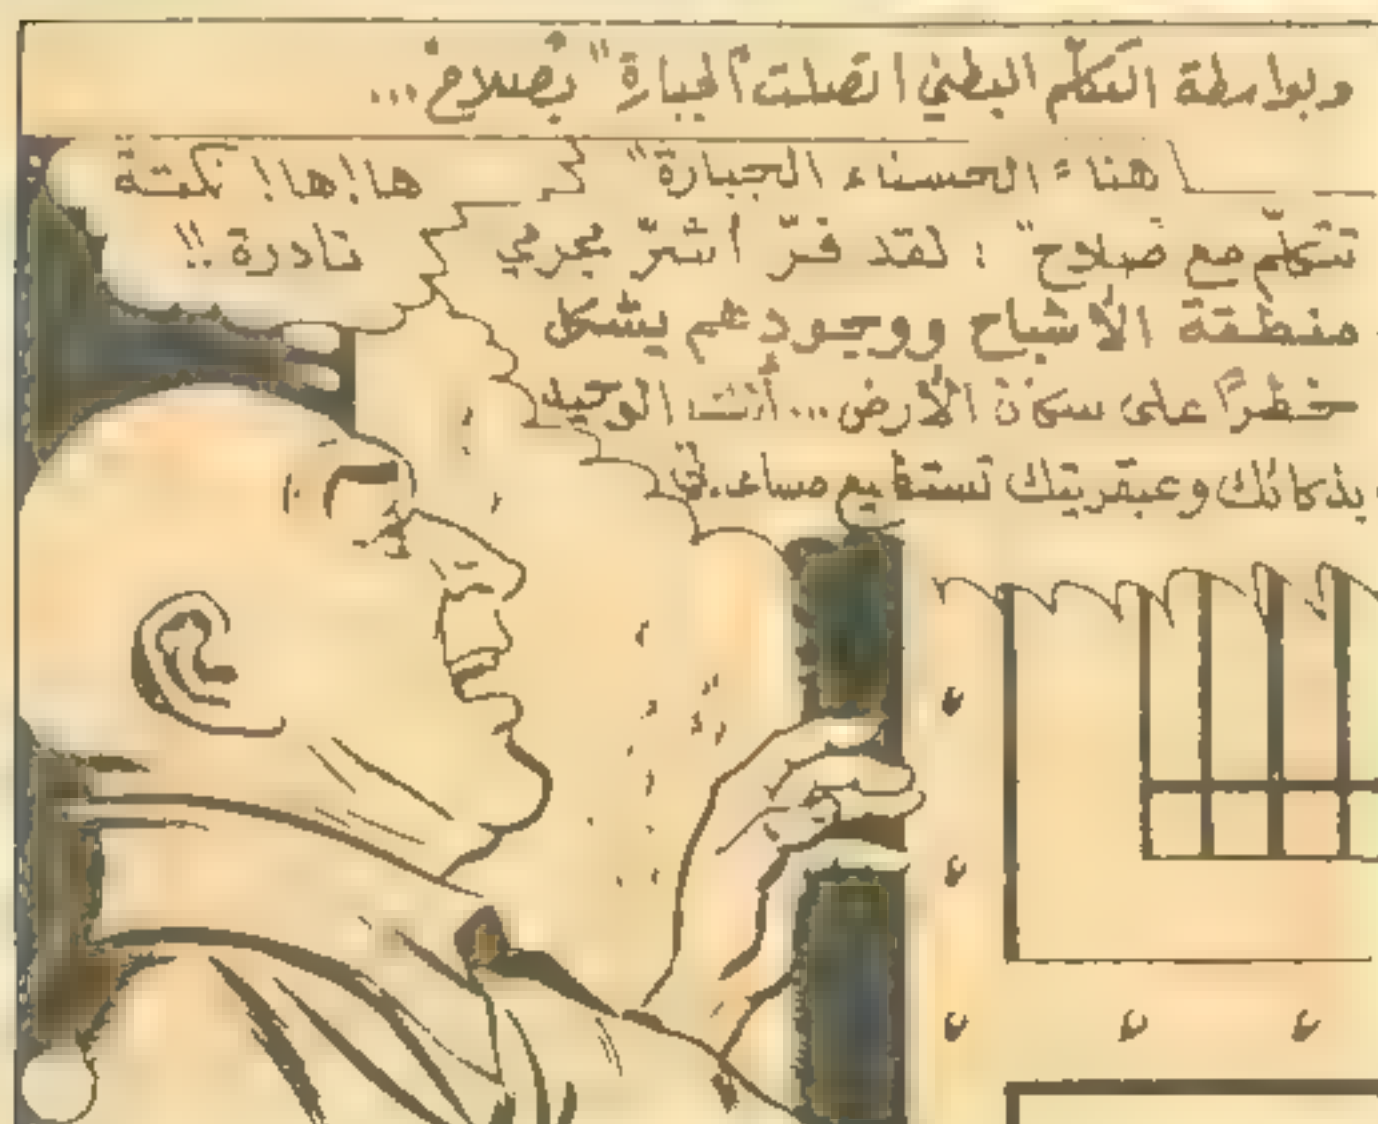 وبواسطة التكلّم البطني اتصلت "الجبارة" بصلاح...
هنا "الحسناء الجبارة"
تتكلّم مع صلاح" : لقد فرّ أشرّ مجرمي
منطقة الأشباح ووجودهم يشكل
خطرًا على سكان الأرض... أنت الوحيد
بذكائك وعبقريتك تستطيع مساعدتي
ها!ها! نكتة
نادرة !!